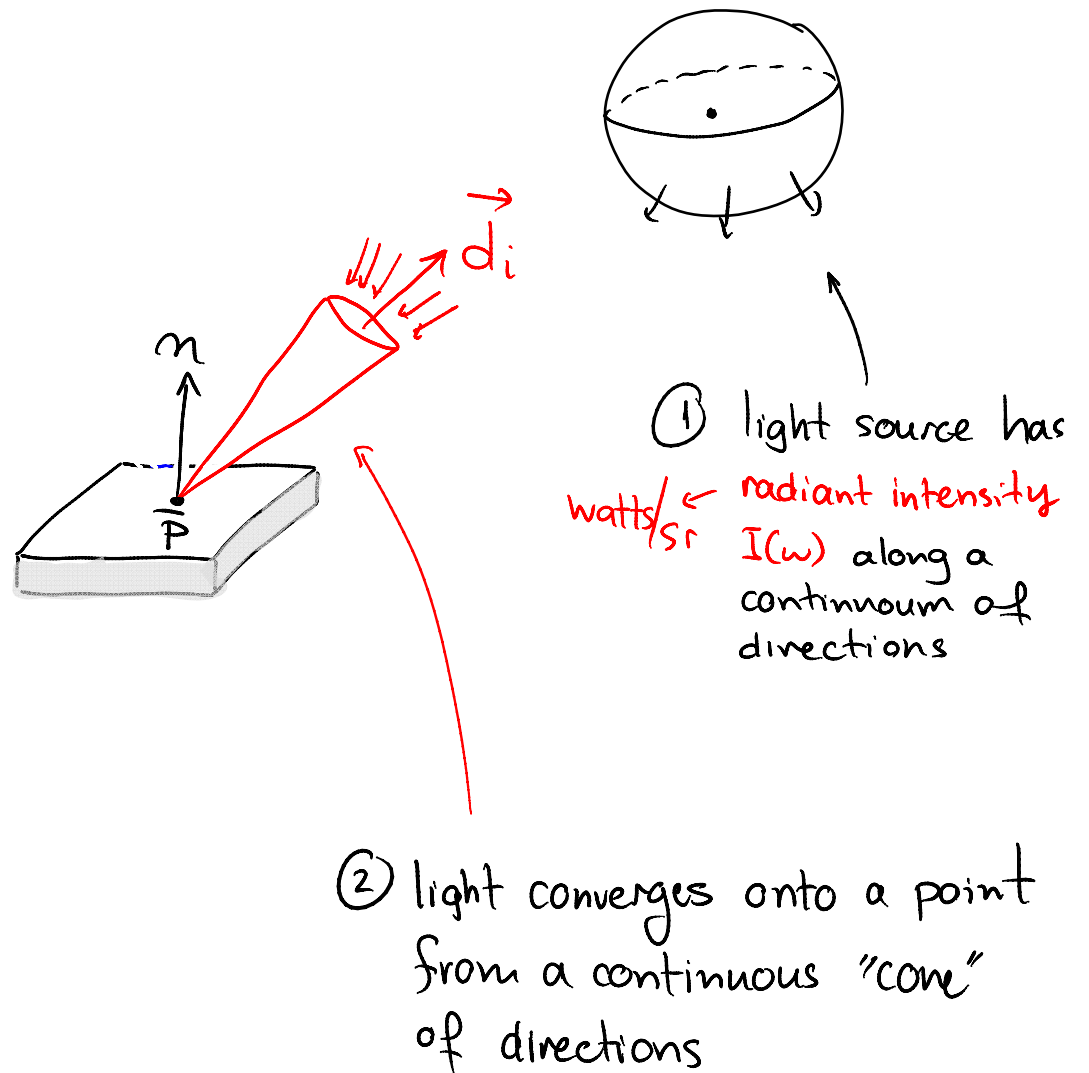 d⃗i
n
p̅
① light source has
watts/sr ← radiant intensity
I(ω) along a
continnoum of
directions
② light converges onto a point
from a continuous "cone"
of directions